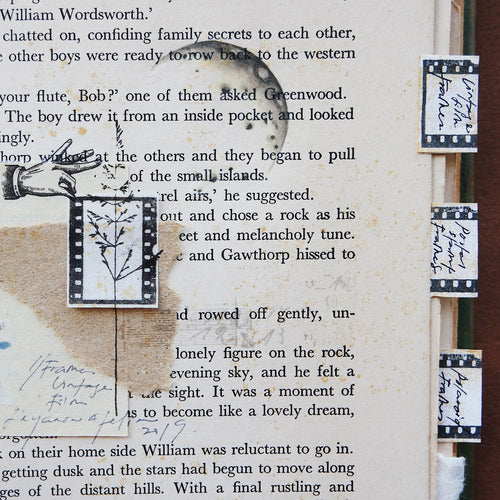 William Wordsworth.'
chatted on, confiding family secrets to each other,
e other boys were ready to row back to the western
your flute, Bob?' one of them asked Greenwood.
The boy drew it from an inside pocket and looked
ingly.
thorp winked at the others and they began to pull
of the small islands.
rel airs,' he suggested.
out and chose a rock as his
eet and melancholy tune.
e and Gawthorp hissed to
nd rowed off gently, un-
lonely figure on the rock,
evening sky, and he felt a
t the sight. It was a moment of
s to become like a lovely dream,
forgotten.
k on their home side William was reluctant to go in.
getting dusk and the stars had begun to move along
ges of the distant hills. With a final rustling and
//Frames
Vintage
Film
2019
Vintage
film
frames
Postage
stamp
frames
Polaroid
frames